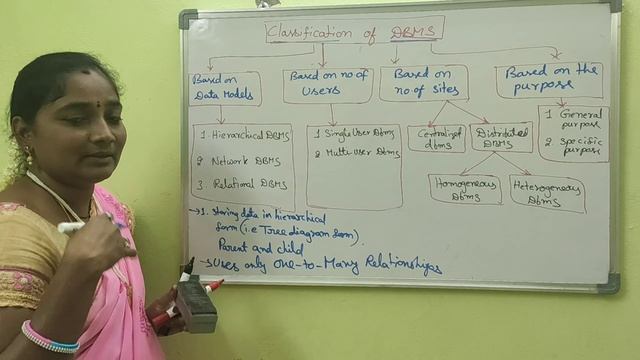 Classification of DBMS
Based on
Data Models
Based on no of
Users
Based on
no of Sites
Based on the
purpose
1. Hierarchical DBMS
2 Network DBMS
3. Relational DBMS
1 Single User Dbms
2 Multi-user Dbms
Centralized
dbms
Distributed
DBMS
Homogeneous
Dbms
Heterogeneous
DbMS
1 General
purpose
2. Specific
purpose
→1. storing data in hierarchical
form (i.e Tree diagram form)
Parent and child
→ Uses only One-to-Many Relationships